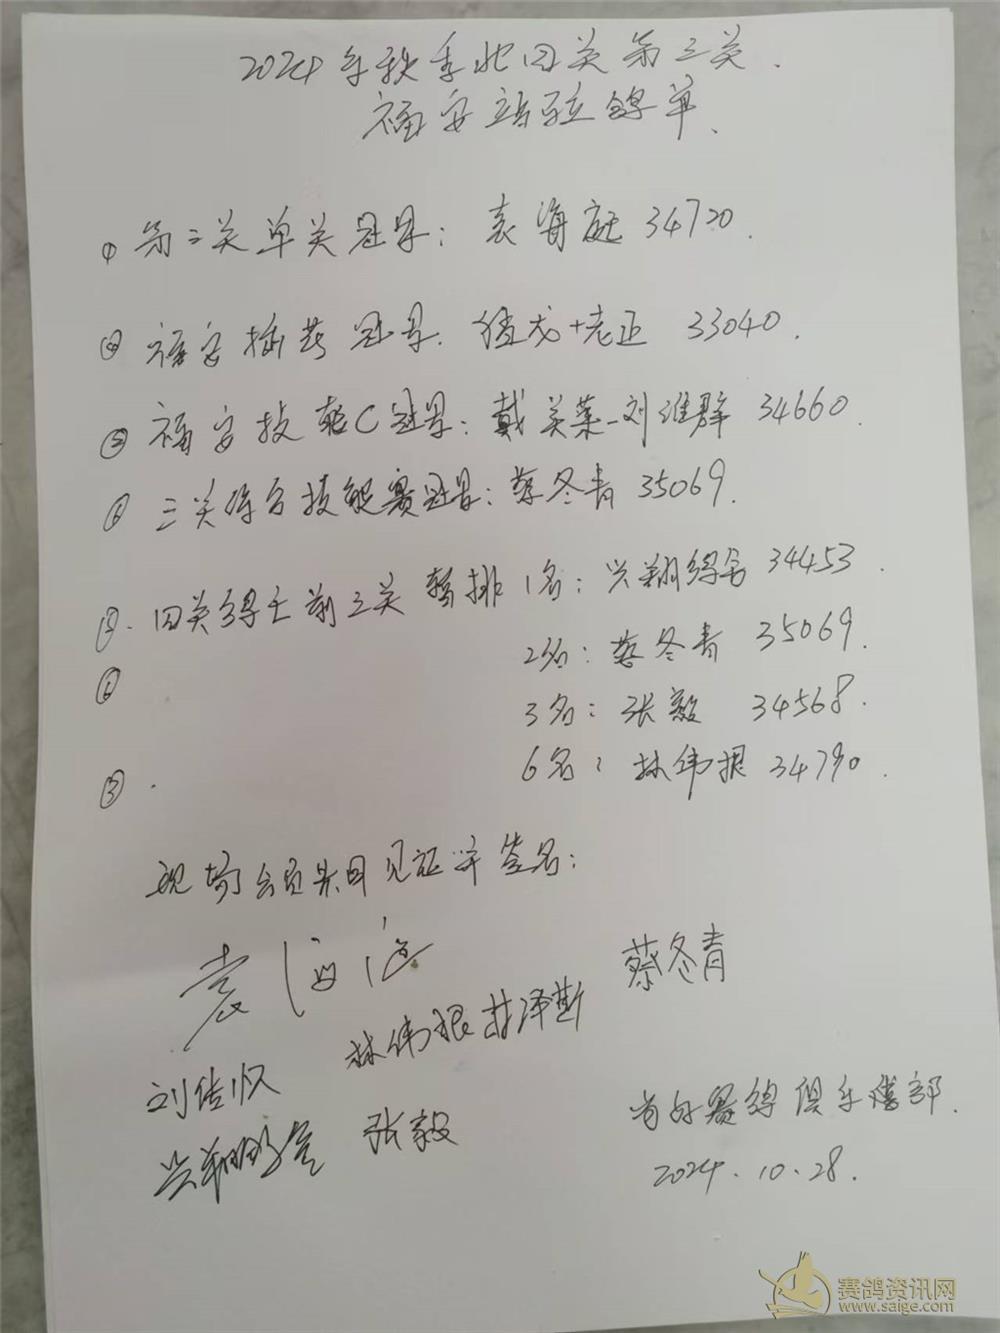 2024年秋季北四关第三关
福安站验鸽单
① 第三关单关冠军：袁海庭 34720
④ 福安插花冠军 猪龙+老正 33040
② 福安技能C冠军：戴关菜-刘淮群 34660
① 三关综合技能赛冠军：蔡冬青 35069
③ 四关鸽王前三关暂排1名：兴翔鸽舍 34453
⑥ 2名：蔡冬青 35069
3名：张毅 34568
③ 6名：林伟根 34790
现场会员共同见证并签名：
袁海庭
蔡冬青
林伟根
刘佳
兴翔鸽舍 张毅
赛鸽俱乐部
2024.10.28
赛鸽资讯网
www.saige.com